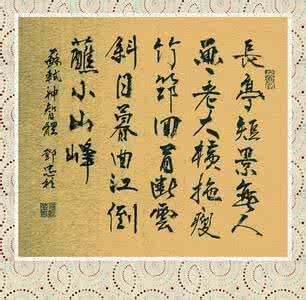 長亭短景無人
畫老大橫拖瘦
竹筇回首斷雲
斜日暮曲江倒
蘸小山峰
蘇軾神智體